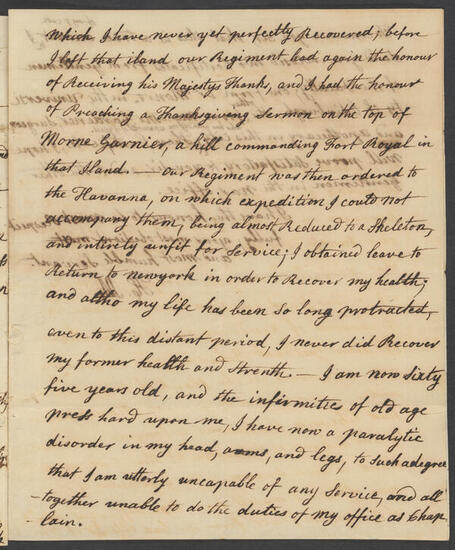 which I have never yet perfectly Recovered; before
I left that iland our Regiment had again the honour
of Receiving his Majestys Thanks, and I had the honour
of Preaching a Thanksgiving Sermon on the top of
Morne Garnier, a hill commanding Fort Royal in
that Iland. — our Regiment was then ordered to
the Havanna, on which expedition I could not
accompany them, being almost Reduced to a Skeleton,
and intirely unfit for Service; I obtained leave to
Return to newyork in order to Recover my health;
and altho my life has been So long protracted,
even to this distant period, I never did Recover
my former health and Strenth. — I am now Sixty
five years old, and the infirmities of old age
press hard upon me, I have now a paralytic
disorder in my head, arms, and legs, to Such a degree
that I am utterly uncapable of any Service, and all
-together unable to do the duties of my office as Chap
-lain.